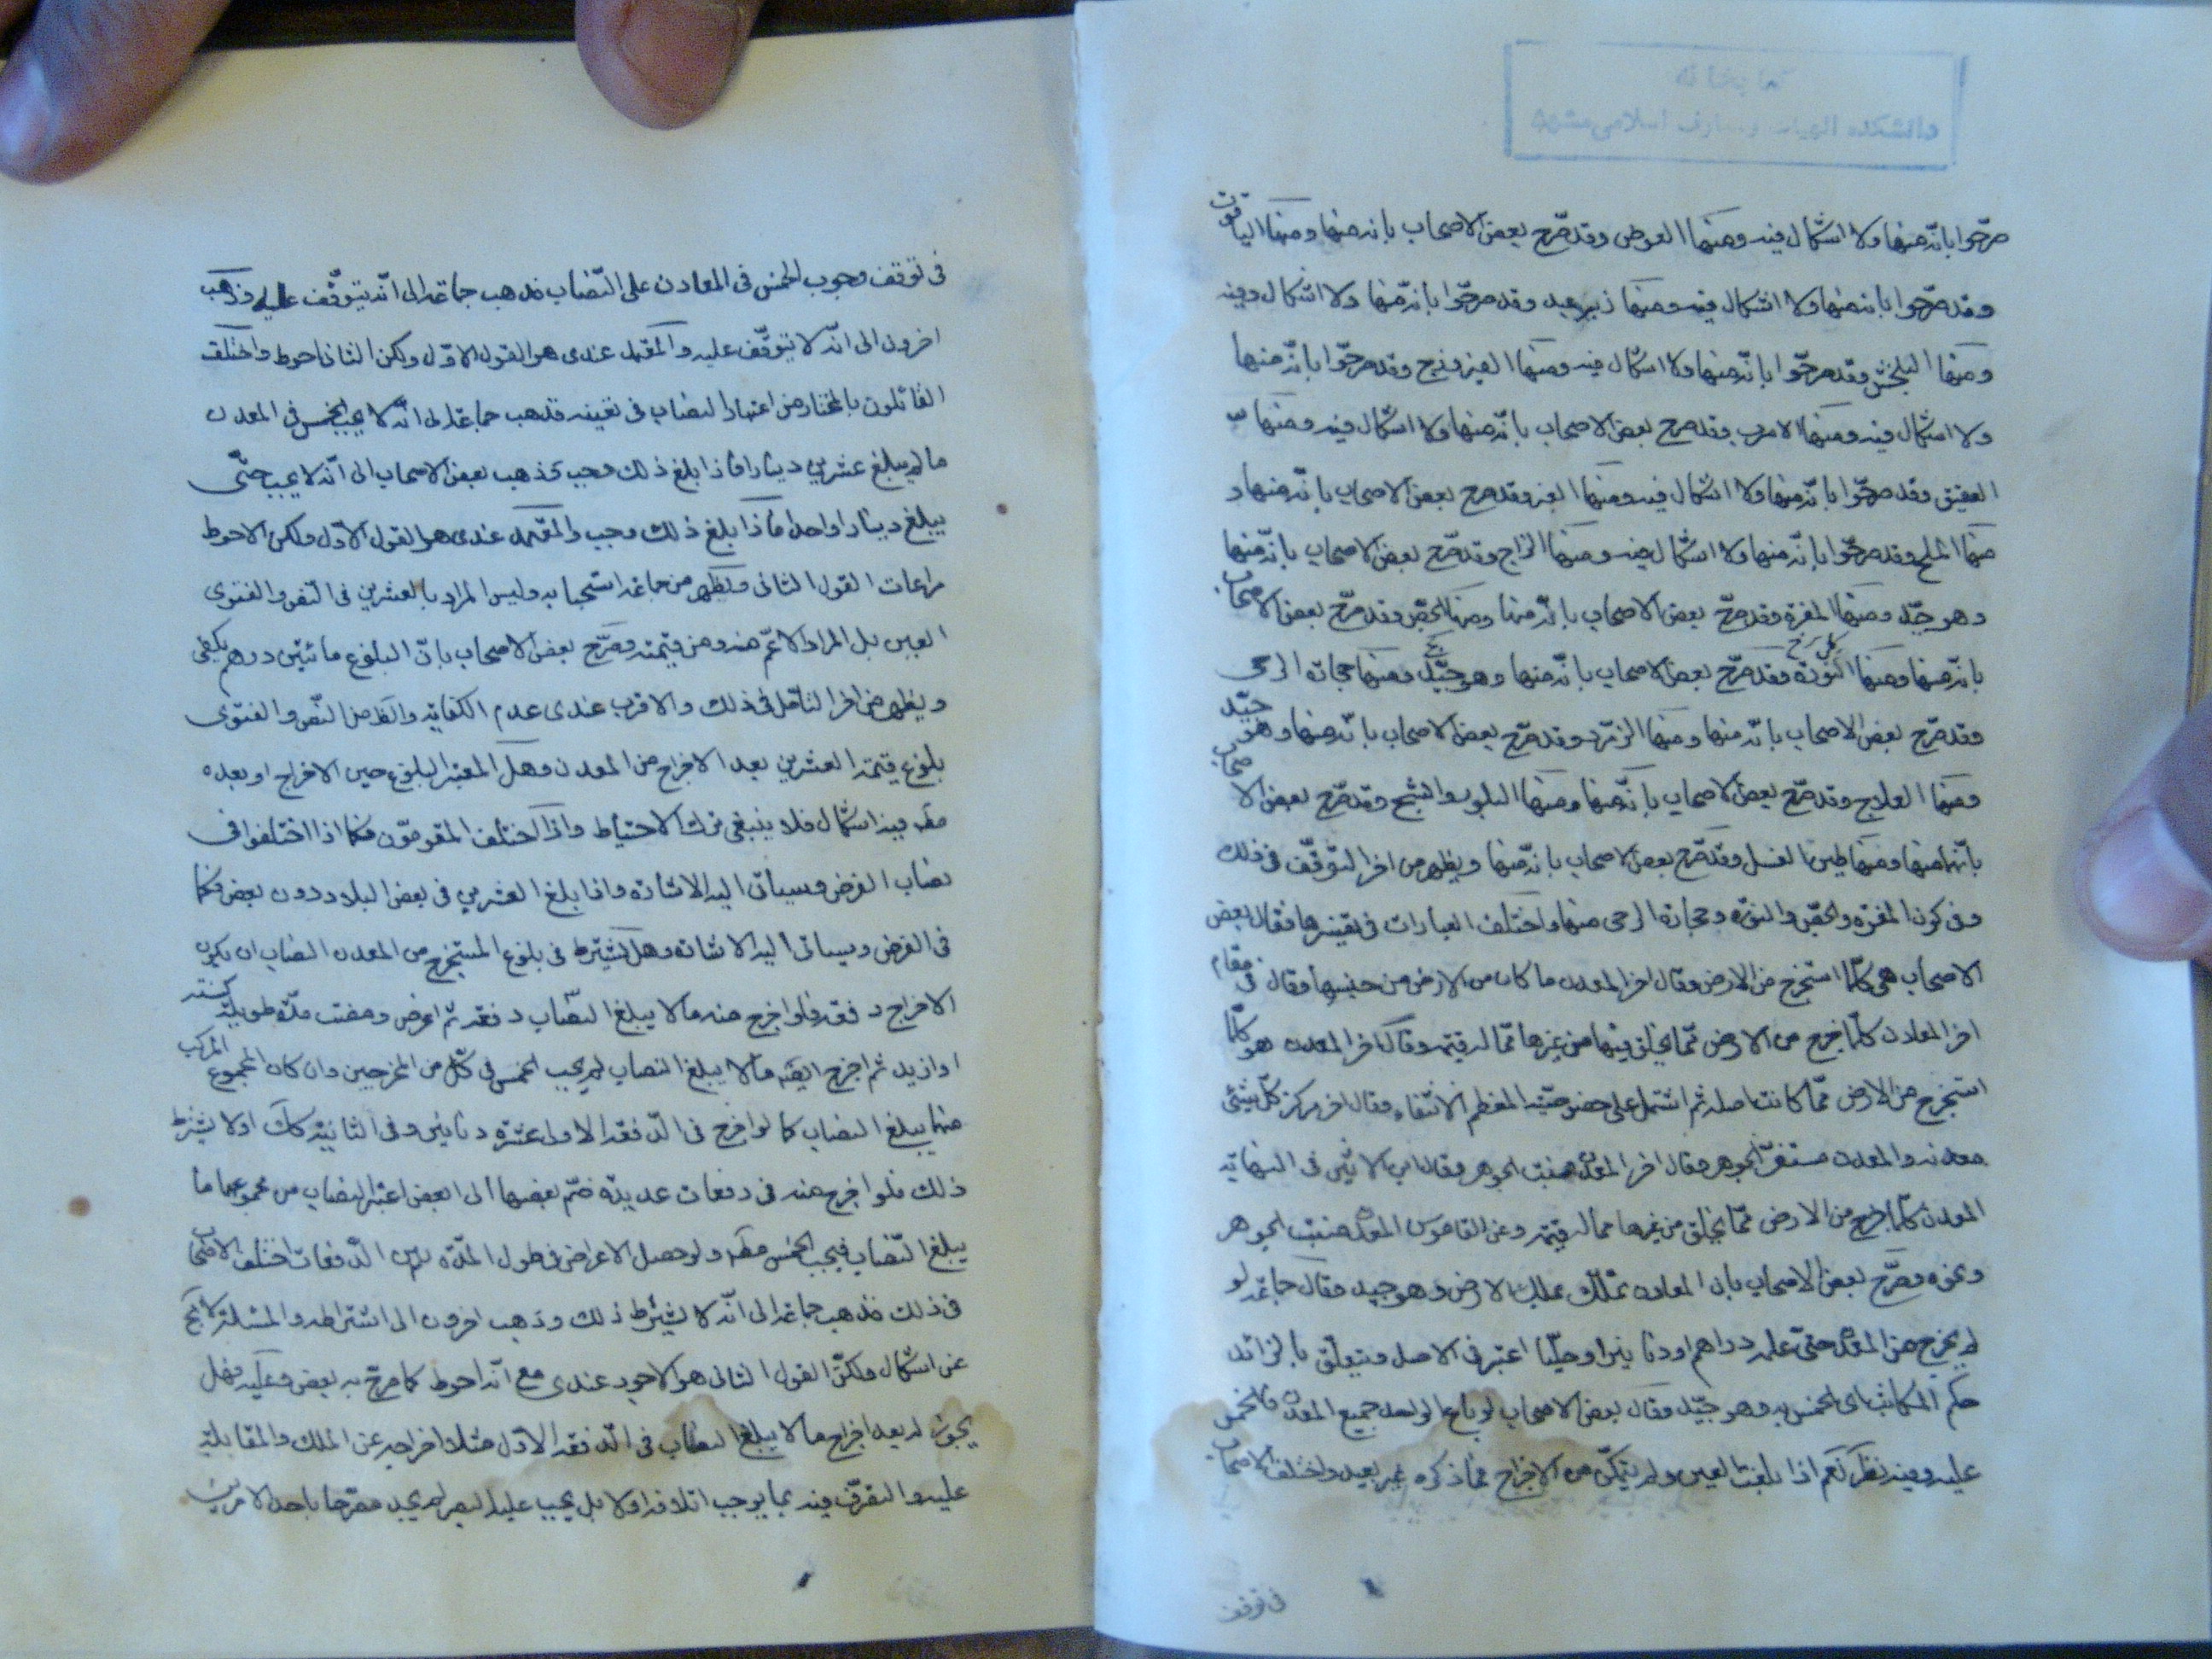 صرّحوا بانّه منها ولا اشكال فيه ومنها وقد صرّح بعض الاصحاب بانه منها ومنها الياقوت
وقد صرّحوا بانه منها ولا اشكال فيه ومنها زبرجد وقد صرّحوا بانّه منها ولا اشكال فيه
ومنها البلخش وقد صرحّوا بانّه منها ولا اشكال فيه ومنها الفيروزج وقد صرحّوا بانّه منها
ولا اشكال فيه ومنها وقد صرح بعض الاصحاب بانّه منها ولا اشكال فيه ومنها
العقيق وقد صرحّوا بانّه منها ولا اشكال فيه ومنها وقد صرح بعض الاصحاب بانّه منها و
منها الملح وقد صرحّوا بانّه منها ولا اشكال فيه ومنها الزاج وقد صرّح بعض الاصحاب بانّه منها
وهو جيّد ومنها المغرة وقد صرّح بعض الاصحاب بانّه منها ومنها الجصّ وقد صرّح بعض الاصحاب
بانّه منها ومنها النّورة وقد صرّح بعض الاصحاب بانّه منها وهو جيّد ومنها حجارة الرحى
وقد صرّح بعض الاصحاب بانّه منها ومنها الزمّرد وقد صرّح بعض الاصحاب بانّه منها وهو جيّد
ومنها وقد صرّح بعض الاصحاب بانّه منها ومنها البلور والشبح وقد صرّح بعض الاصحاب
بانّهما منها ومنها طين الغسل وقد صرّح بعض الاصحاب بانّه منها ويظهر من اخر التوقّف فى ذلك
وفى كون المغرة والجصّ والنورة وحجارة الرحى منها واختلف العبارات فى تفسيرها فقال بعض
الاصحاب هى كلّما استخرج من الارض وقال اخر المعدن ما كان من الارض من جنسها وقال فى مقام
اخر المعادن كلّما اخرج من الارض ممّا يخلق فيها من غيرها ممّا له قيمة وقال اخر المعدن هو كلّما
استخرج من الارض ممّا كانت اصله ثم اشتمل على خصوصيّة لعظم الانتفاع وقال اخر مركز كلّ شيئ
معدنه والمعدن مستقرّ الجوهر وقال اخر المعدن منبت الجوهر وقال ابن الاثير فى النهاية
المعدن كلّما خرج من الارض ممّا يخلق من غيرها مما له قيمة وعن القاموس المعدن منبت الجوهر
ونحوه وصرّح بعض الاصحاب بان المعادن تملك بملك الارض وهو جيد وقال جماعة لو
لم يخرج من المعدن حتى عمله دراهم او دنانير او حليّا اعتبر فى الاصل ويتعلّق بالزائد
حكم المكاسب اى الخمس به وهو جيّد وقال بعض الاصحاب لو باع الواجد جميع المعدن فالخمس
عليه وفيه نظر نعم اذا تلفت العين ولم يتمكّن من الاخراج فما ذكره غير بعيد واختلف الاصحاب
فى توقف
فى توقف وجوب الخمس فى المعادن على النّصاب فذهب جماعة الى انّه يتوقّف عليه وذهب
اخرون الى انّه لا يتوقّف عليه والمعتمد عندى هو القول الاوّل ولكن الثانى احوط واختلف
القائلون بالمختار من اعتبار النصاب فى تعيينه فذهب جماعة الى انّه لا يجب الخمس فى المعدن
ما لم يبلغ عشرين دينارا فاذا بلغ ذلك وجب وذهب بعض الاصحاب الى انّه لا يجب حتّى
يبلغ دينارا واحدا فاذا بلغ ذلك وجب والمعتمد عندى هو القول الاوّل ولكن الاحوط
مراعات القول الثانى ويظهر من جماعة استحبابه وليس المراد بالعشرين فى النّص والفتوى
العين بل المراد الاعمّ منه ومن قيمته وصرّح بعض الاصحاب بانّ البلوغ مائتين درهم يكفى
ويظهر من اخر التأمّل فى ذلك والاقرب عندى عدم الكفاية والظ من النّص والفتوى
بلوغ قيمة العشرين بعد الاخراج من المعدن وهل المعتبر البلوغ حين الاخراج او بعده
مط فيه اشكال فلا ينبغى ترك الاحتياط واذا اختلف المقومّون فكما اذا اختلفوا فى
نصاب القرض وسيأتى اليه الاشارة واذا بلغ العشرين فى بعض البلاد دون بعض فكما
فى القرض وسياتى اليه الاشارة وهل يشترط فى بلوغ المستخرج من المعدن النصاب ان يكون
الاخراج دفعة فلو اخرج منه ما لا يبلغ النصّاب دفعة ثمّ اعرض ومضت مدّة طويلة كسنة
او ازيد ثم اخرج ايضا ما لا يبلغ النصاب لم يجب الخمس فى كلّ من المخرجين وان كان المجموع المركب
منهما يبلغ النصاب كما لو اخرج فى الدّفعة الاولى عشرة دنانير وفى الثانية كك او لا يشترط
ذلك فلو اخرج منه فى دفعات عديدة ضمّ بعضها الى البعض اعتبر النصاب من مجموعها ما
يبلغ النّصاب فيجب الخمس مط ولو حصل الاعراض فى طول المدّة بين الدّفعات اختلف الاصحاب
فى ذلك فذهب جماعة الى انّه لا يشترط ذلك وذهب اخرون الى اشتراطه والمسئلة لا تخ
عن اشكال ولكنّ القول الثانى هو الاجود عندى مع انّه احوط كما صرّح به بعض وعليه فهل
يجوز له بعد اخراج ما لا يبلغ النصاب فى الدّفعة الاوّل مثلا اخراجه عن الملك والمقابلة
عليه والتصرّف فيه بما يوجب اتلافه او لا بل يجب عليه الصبر لم يجد مصرّحا باحد الامرين